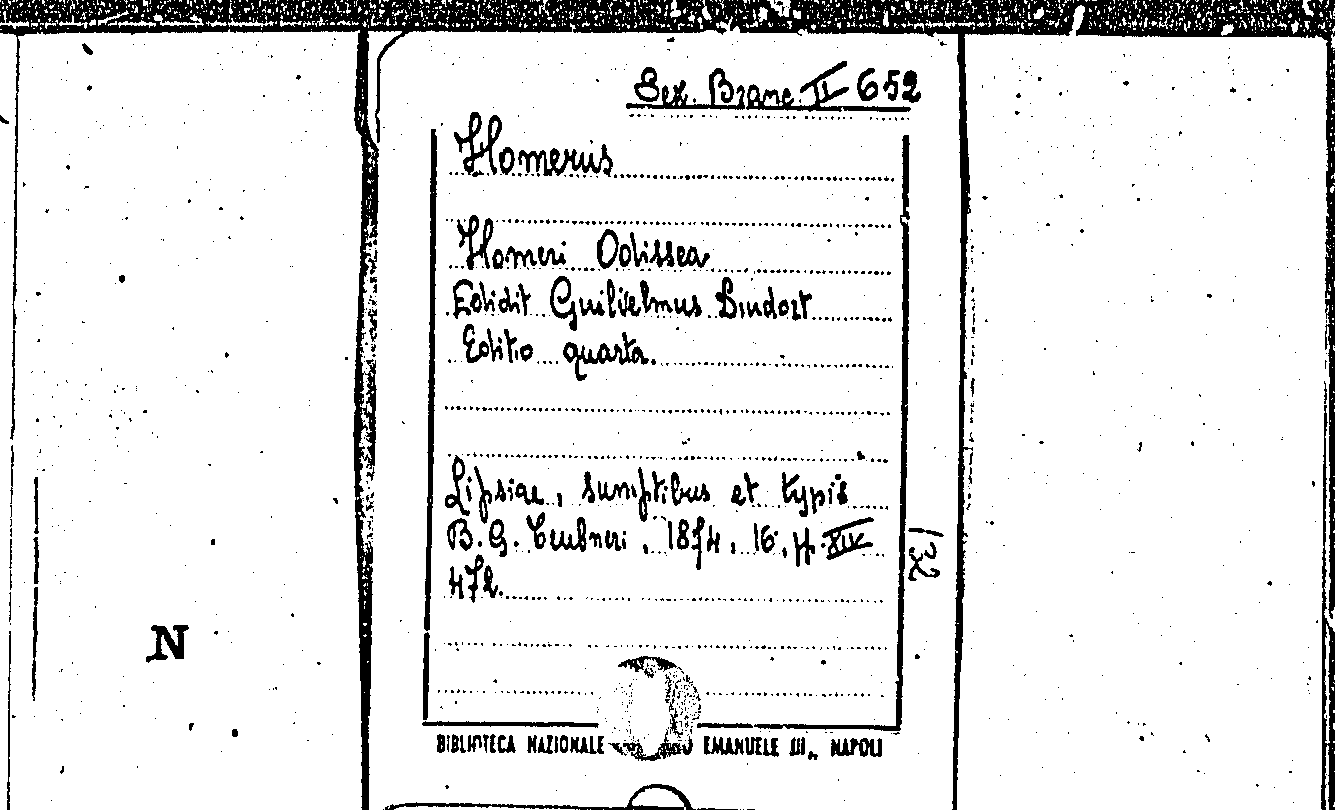 Sez. Branc. II 652
Homerus
Homeri Odissea
Edidit Guilielmus Dindorf
Editio quarta.
Lipsiae, sumptibus et typis
B. G. Teubneri, 1874, 16, pp. XIV
472.
132
N
BIBLIOTECA NAZIONALE EMANUELE III,, NAPOLI